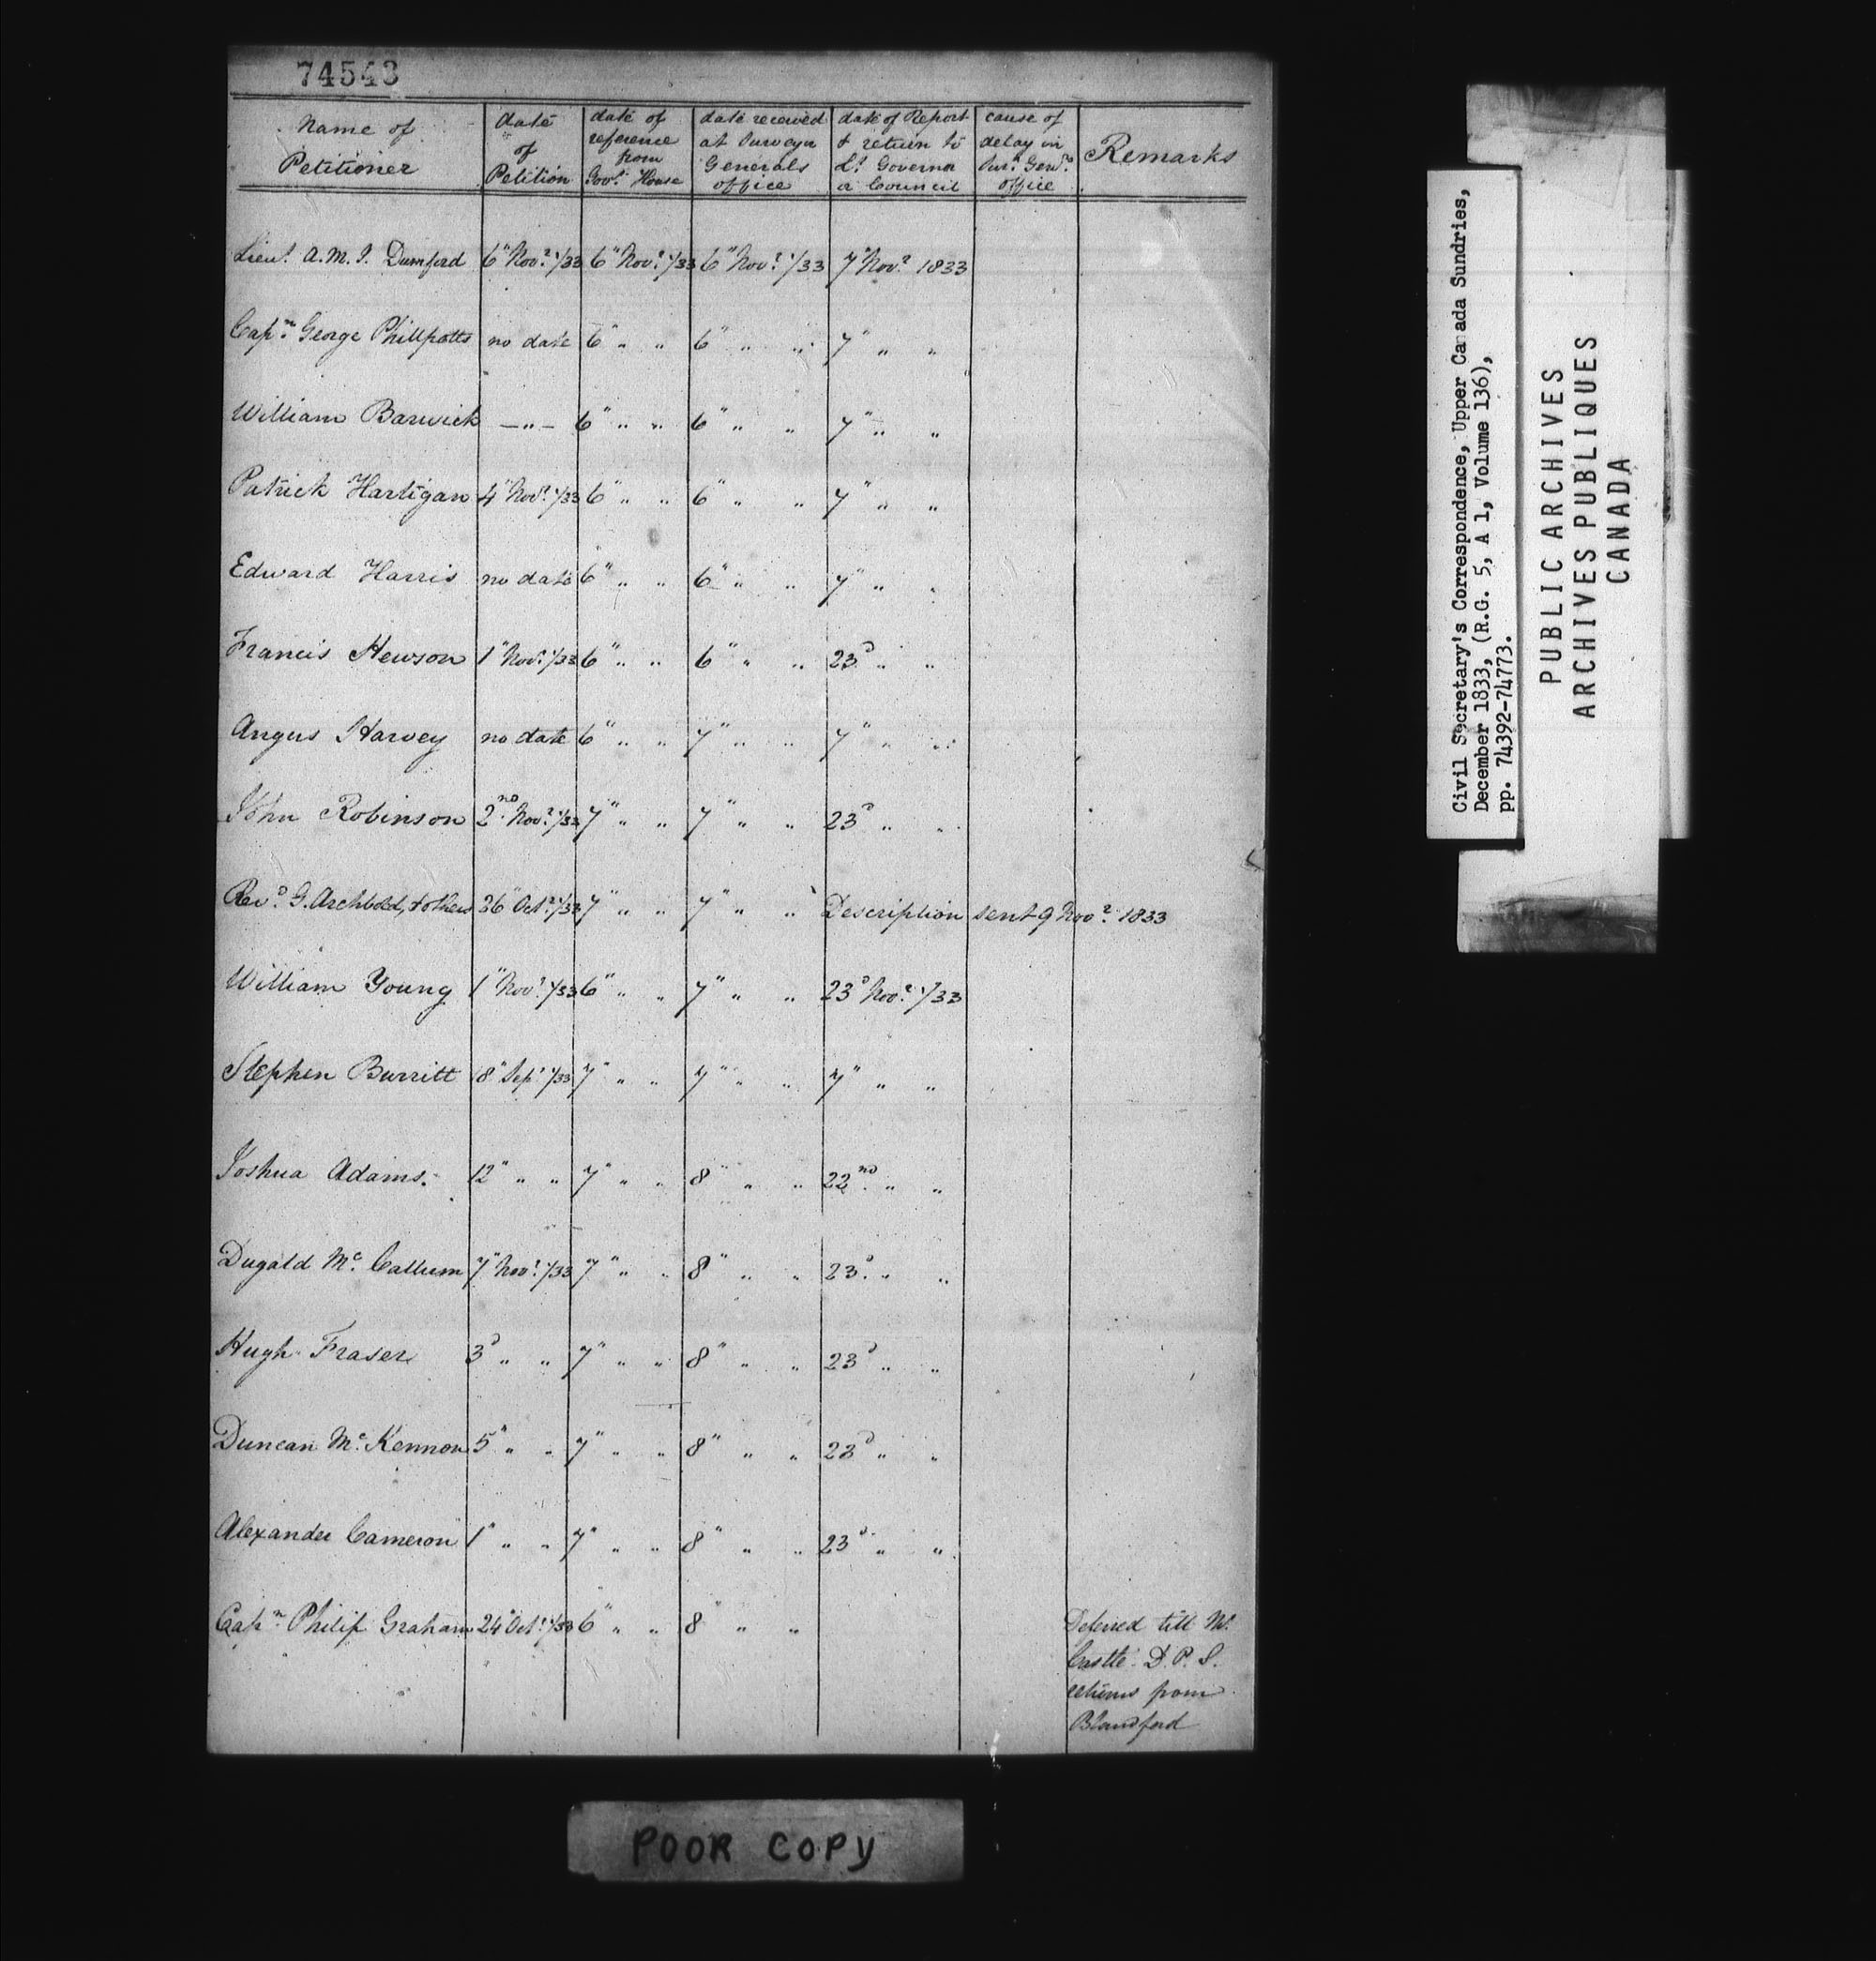 74543
Name of Petitioner | date of Petition | date of reference from Govt. House | date received at Surveyor Generals office | date of Report & return to Lt. Governor or Council | cause of delay in Surr. Genls. office | Remarks
Lieut. A.M.I. Durnford | 6" Novr. 1/33 | 6" Novr. 1/33 | 6" Novr. 1/33 | 7" Novr. 1833
Capn. George Phillpotts | no date | 6" " " | 6" " " | 7" " "
William Barwick | —"— | 6" " " | 6" " " | 7" " "
Patrick Hartigan | 4" Novr. 1/33 | 6" " " | 6" " " | 7" " "
Edward Harris | no date | 6" " " | 6" " " | 7" " "
Francis Hewson | 1" Novr. 1/33 | 6" " " | 6" " " | 23d " "
Angus Harvey | no date | 6" " " | 7" " " | 7" " "
John Robinson | 2nd Novr. 1/33 | 7" " " | 7" " " | 23d " "
Revd. G. Archbold, & others | 26" Octr. 1/33 | 7" " " | 7" " " | Description sent 9 Novr. 1833
William Young | 1" Novr. 1/33 | 6" " " | 7" " " | 23d Novr. 1/33
Stephen Burritt | 18" Sept. 1/33 | 7" " " | 7" " " | 7" " "
Joshua Adams. | 12" " " | 7" " " | 8" " " | 22nd. " "
Dugald Mc. Callum | 7" Novr. 1/33 | 7" " " | 8" " " | 23d. " "
Hugh Fraser | 3d " " | 7" " " | 8" " " | 23d " "
Duncan Mc. Kennon | 5" " " | 7" " " | 8" " " | 23d " "
Alexander Cameron | 1" " " | 7" " " | 8" " " | 23d " "
Capn. Philip Graham | 24" Octr. 1/33 | 6" " " | 8" " " | Deferred till Mr.
Castle D.P.S.
returns from
Blandford
POOR COPY
Civil Secretary's Correspondence, Upper Canada Sundries,
December 1833, (R.G. 5, A 1, Volume 136),
pp. 74392-74773.
PUBLIC ARCHIVES
ARCHIVES PUBLIQUES
CANADA